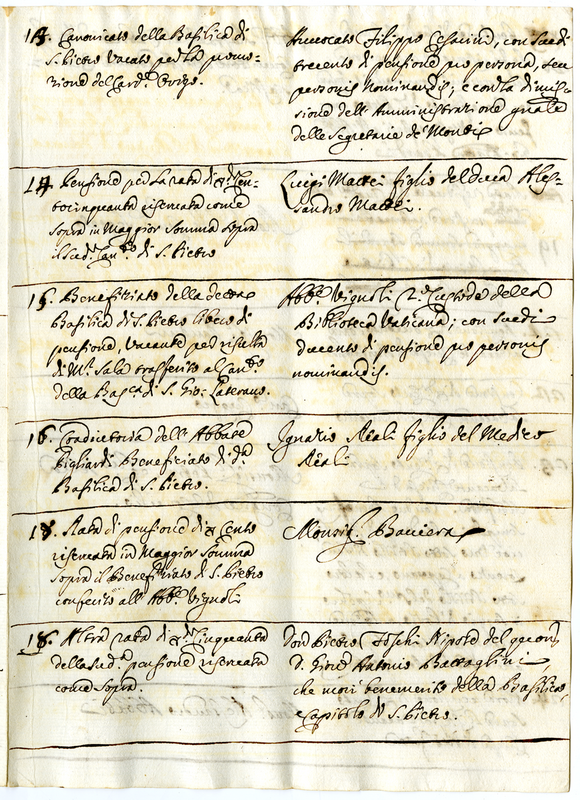 13. Canonicato della Basilica di
S. Pietro vacato per la promo-
zione del Card.
Avvocato Filippo Cesarini, con Scudi
trecento di pensione pro persona, seu
personis nominandis; e con la dimis-
sione dell' Amministrazione
delle Segretarie de' Monti
14 Pensione per la rata di Cen-
tocinquanta riservata come
sopra in Maggior Somma sopra
il Sud.º Can.to di S. Pietro
Luigi Mattei figlio del Duca Ales-
sandro Mattei.
15. Benefiziato della
Basilica di S. Pietro libero di
pensione, vacante per
di M.r Sala trasferito al Can.to
della Bas.ca di S. Gio: Laterano.
Abb.e Vignoli 2.º Custode della
Biblioteca Vaticana; con Scudi
ducento di pensione pro personis
nominandis.
16. Coadiutoria dell' Abbate
Pigliardi Beneficiato di d.a
Basilica di S. Pietro.
Ignazio Reali figlio del Medico
Reali
17. Rata di pensione di Cento
riservata in Maggior Somma
sopra il Benefiziato di S. Pietro
conferito all' Abb.e Vignoli
Monsig.r Baviera
18. Altra rata di Cinquanta
della Sud.a pensione riservata
come sopra.
Don Pietro Foschi Nipote del
D. Gio: Antonio Battaglini,
che morì benemerito della Basilica,
e Capitolo di S. Pietro.